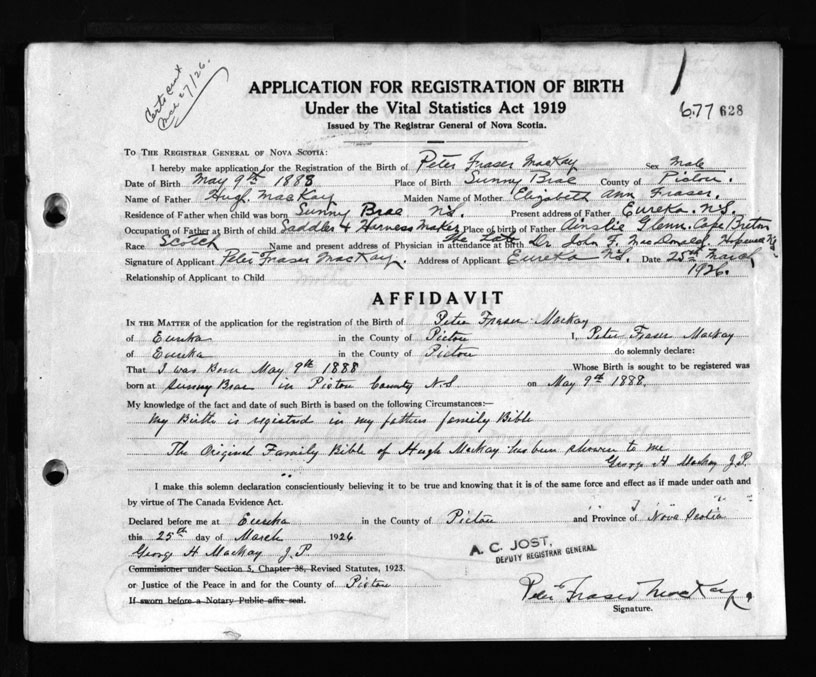 Certs sent
677 628
APPLICATION FOR REGISTRATION OF BIRTH
Under the Vital Statistics Act 1919
Issued by The Registrar General of Nova Scotia.
To The Registrar General of Nova Scotia:
I hereby make application for Registration of the Birth of Peter Fraser MacKay Sex Male
Date of Birth May 9th 1888 Place of Birth Sunny Brae County of Pictou.
Name of Father Hugh MacKay Maiden Name of Mother Elizabeth Ann Fraser.
Residence of Father when child was born Sunny Brae N.S. Present address of Father Eureka. N.S
Occupation of Father at Birth of child Saddler & Harness Maker Place of birth of Father Ainslie Glenn. Cape Breton
Race Scotch Name and present address of Physician in attendance at birth The Late Dr. John F. MacDonald, Hopewell N.S
Signature of Applicant Peter Fraser MacKay. Address of Applicant Eureka N.S. Date 25th March
1926.
Relationship of Applicant to Child
AFFIDAVIT
In the Matter of the application for the registration of the Birth of Peter Fraser MacKay
of Eureka in the County of Pictou I, Peter Fraser MacKay
of Eureka in the County of Pictou do solemnly declare:
That I was Born May 9th 1888 Whose Birth is sought to be registered was
born at Sunny Brae in Pictou County N.S on May 9th 1888.
My knowledge of the fact and date of such Birth is based on the following Circumstances:—
My Birth is registred in my fathers family Bible
The Original Family Bible of Hugh MacKay has been shown to me
George H MacKay J.P.
I make this solemn declaration conscientiously believing it to be true and knowing that it is of the same force and effect as if made under oath and
by virtue of The Canada Evidence Act.
Declared before me at Eureka in the County of Pictou and Province of Nova Scotia
this 25th day of March 1926
George H MacKay J.P
A. C. JOST,
DEPUTY REGISTRAR GENERAL
Commissioner under Section 5, Chapter 38, Revised Statutes, 1923.
or Justice of the Peace in and for the County of Pictou
If sworn before a Notary Public affix seal.
Peter Fraser MacKay
Signature.